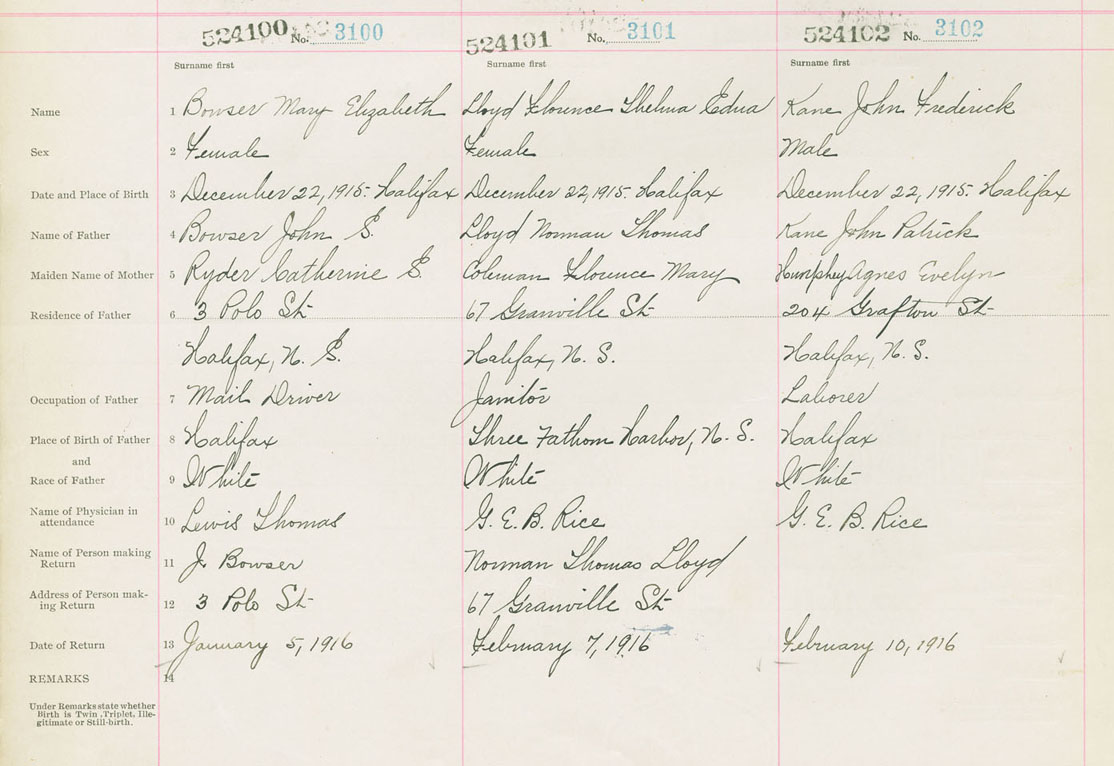 524100 No. 3100 524101 No. 3101 524102 No. 3102
Surname first Surname first Surname first
Name 1 Bowser Mary Elizabeth Lloyd Florence Thelma Edna Kane John Frederick
Sex 2 Female Female Male
Date and Place of Birth 3 December 22, 1915. Halifax December 22, 1915. Halifax December 22, 1915. Halifax
Name of Father 4 Bowser John S. Lloyd Norman Thomas Kane John Patrick
Maiden Name of Mother 5 Ryder Catherine E. Coleman Florence Mary Humphey Agnes Evelyn
Residence of Father 6 3 Polo St. 67 Granville St. 204 Grafton St.
Halifax, N. S. Halifax, N. S. Halifax, N. S.
Occupation of Father 7 Mail Driver Janitor Laborer
Place of Birth of Father 8 Halifax Three Fathom Harbor, N. S. Halifax
and
Race of Father 9 White White White
Name of Physician in
attendance 10 Lewis Thomas G. E. B. Rice G. E. B. Rice
Name of Person making
Return 11 J. Bowser Norman Thomas Lloyd
Address of Person mak-
ing Return 12 3 Polo St. 67 Granville St.
Date of Return 13 January 5, 1916 February 7, 1916 February 10, 1916
REMARKS 14
Under Remarks state whether
Birth is Twin, Triplet, Ille-
gitimate or Still-birth.